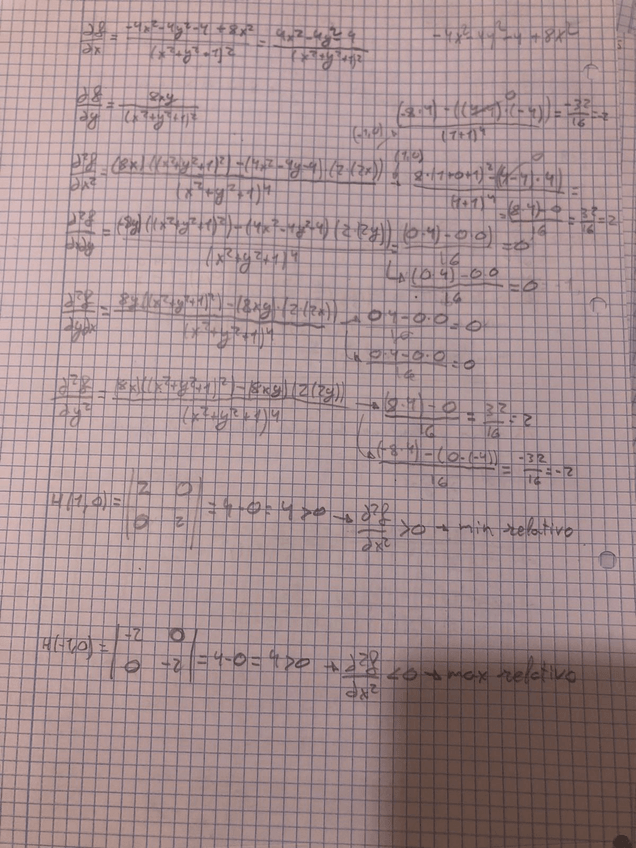 ∂f/∂x = (-4x²-4y²-4+8x²)/(x²+y²+1)² = (4x²-4y²-4)/(x²+y²+1)²    -4x²-4y²-4+8x²
∂f/∂y = 8xy/(x²+y²+1)²
(-1,0) → ((-8·4)-((4-4)·(-4)))/(1+1)⁴ = -32/16 = -2
∂²f/∂x² = ((8x)((x²+y²+1)²)-(4x²-4y-4)(2·(2x)))/(x²+y²+1)⁴ (1,0) (8·(1+0+1)²-(4-4)·4)/(1+1)⁴ =
= ((8·4)-0)/16 = 32/16 = 2
∂²f/∂x∂y = ((-8y)((x²+y²+1)²)-(4x²-4y²-4)(2·(2y)))/(x²+y²+1)⁴ = ((0·4)-0·0)/16 = 0
↳ ((0·4)-0·0)/16 = 0
∂²f/∂y∂x = (8y((x²+y²+1)²)-(8xy·(2·(2x))))/(x²+y²+1)⁴ → (0·4-0·0)/16 = 0
↳ (0·4-0·0)/16 = 0
∂²f/∂y² = ((8x)((x²+y²+1)²)-(8xy)(2(2y)))/(x²+y²+1)⁴ → ((8·4)-0)/16 = 32/16 = 2
↳ ((-8·4)-(0·(-4)))/16 = -32/16 = -2
H(1,0) = |2 0; 0 2| = 4-0 = 4>0 → ∂²f/∂x² >0 → min relativo
H(-1,0) = |-2 0; 0 -2| = 4-0 = 4>0 → ∂²f/∂x² <0 → max relativo